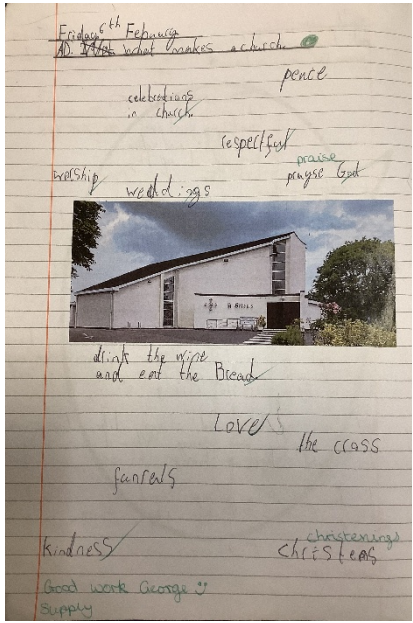 Friday 6th Febuary
AO. What makes a church.
pence
celebrations
in church
respectful
praise
worship
prayse God
weddings
drink the wine
and eat the Bread
Love
the cross
funrals
christenings
kindness
Christens
Good work George
Supply